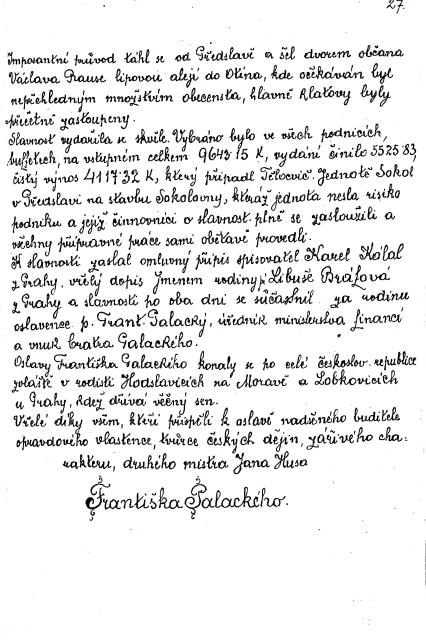 27.
Imposantní průvod táhl se od Předslavi a šel dvorem občana
Václava Prause lipovou alejí do Otína, kde očekáván byl
nepřehledným množstvím obecenstva, hlavně Klatovy byly
početně zastoupeny.
Slavnost vydařila se skvěle. Vybráno bylo ve všech podnicích,
buffetech, na vstupném celkem 9643·15 K, vydání činilo 5525·83,
čistý výnos 4117·32 K, který připadl Tělocvič. Jednotě Sokol
v Předslavi na stavbu Sokolovny, kterážto jednota nesla risiko
podniku a jejíž činnovníci o slavnost plně se zasloužili a
všechny přípravné práce sami obětavě provedli.
K slavnosti zaslal omluvný přípis spisovatel Karel Kálal
z Prahy, vřelý dopis jménem rodiny p. Libuše Bráfová
z Prahy a slavnosti po oba dni se súčastnil za rodinu
oslavence p. Frant. Palacký, úředník ministerstva financí
a vnuk bratra Palackého.
Oslavy Františka Palackého konaly se po celé českoslov. republice
zvláště v rodišti Hodslavicích na Moravě a Lobkovicích
u Prahy, kdež dřívá věčný sen.
Vřelé díky všem, kteří přispěli k oslavě nadšeného buditele
opravdového vlastence, tvůrce českých dějin, zářivého cha-
rakteru, druhého mistra Jana Husa
Františka Palackého.